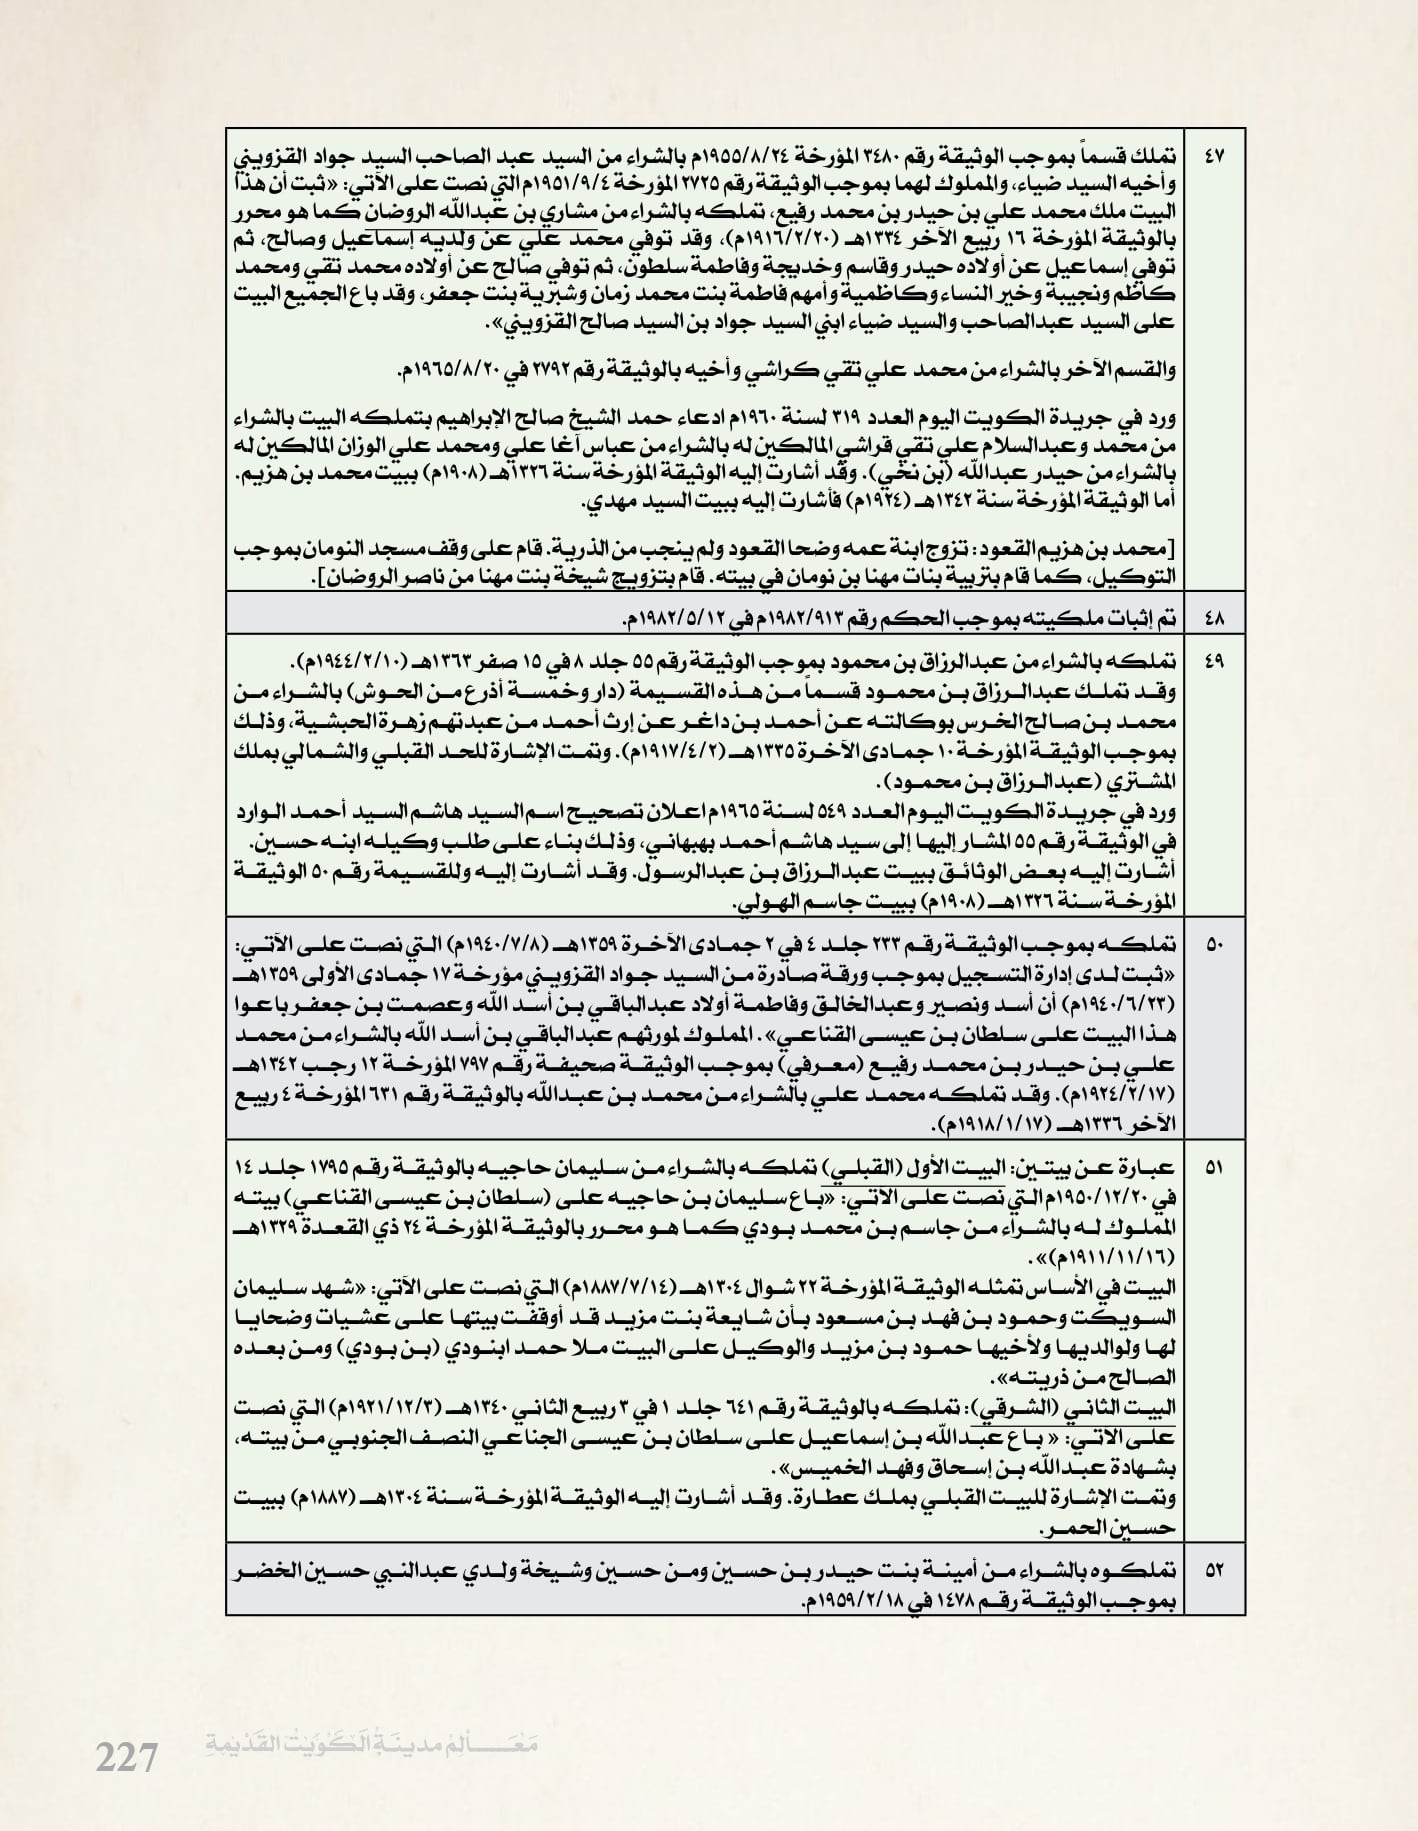 ٤٧
تملك قسماً بموجب الوثيقة رقم ٣٤٨٠ المؤرخة ١٩٥٥/٨/٢٤م بالشراء من السيد عبد الصاحب السيد جواد القزويني
وأخيه السيد ضياء، والمملوك لهما بموجب الوثيقة رقم ٢٧٢٥ المؤرخة ١٩٥١/٩/٤م التي نصت على الآتي: «ثبت أن هذا
البيت ملك محمد علي بن حيدر بن محمد رفيع، تملكه بالشراء من مشاري بن عبدالله الروضان كما هو محرر
بالوثيقة المؤرخة ١٦ ربيع الآخر ١٣٣٤هـ (١٩١٦/٢/٢٠م)، وقد توفي محمد علي عن ولديه إسماعيل وصالح، ثم
توفي إسماعيل عن أولاده حيدر وقاسم وخديجة وفاطمة سلطون، ثم توفي صالح عن أولاده محمد تقي ومحمد
كاظم ونجيبة وخير النساء وكاظمية وأمهم فاطمة بنت محمد زمان وشبرية بنت جعفر، وقد باع الجميع البيت
على السيد عبدالصاحب والسيد ضياء ابني السيد جواد بن السيد صالح القزويني».
والقسم الآخر بالشراء من محمد علي تقي كراشي وأخيه بالوثيقة رقم ٢٧٩٢ في ١٩٦٥/٨/٢٠م.
ورد في جريدة الكويت اليوم العدد ٣١٩ لسنة ١٩٦٠م ادعاء حمد الشيخ صالح الإبراهيم بتملكه البيت بالشراء
من محمد وعبدالسلام علي تقي قراشي المالكين له بالشراء من عباس آغا علي ومحمد علي الوزان المالكين له
بالشراء من حيدر عبدالله (بن نخي). وقد أشارت إليه الوثيقة المؤرخة سنة ١٣٢٦هـ (١٩٠٨م) ببيت محمد بن هزيم.
أما الوثيقة المؤرخة سنة ١٣٤٢هـ (١٩٢٤م) فأشارت إليه ببيت السيد مهدي.
[محمد بن هزيم القعود: تزوج ابنة عمه وضحا القعود ولم ينجب من الذرية. قام على وقف مسجد النومان بموجب
التوكيل، كما قام بتربية بنات مهنا بن نومان في بيته. قام بتزويج شيخة بنت مهنا من ناصر الروضان].
٤٨
تم إثبات ملكيته بموجب الحكم رقم ١٩٨٢/٩١٣م في ١٩٨٢/٥/١٢م.
٤٩
تملكه بالشراء من عبدالرزاق بن محمود بموجب الوثيقة رقم ٥٥ جلد ٨ في ١٥ صفر ١٣٦٣هـ (١٩٤٤/٢/١٠م).
وقد تملك عبدالرزاق بن محمود قسماً من هذه القسيمة (دار وخمسة أذرع من الحوش) بالشراء من
محمد بن صالح الخرس بوكالته عن أحمد بن داغر عن إرث أحمد من عبدتهم زهرة الحبشية، وذلك
بموجب الوثيقة المؤرخة ١٠ جمادى الآخرة ١٣٣٥هـ (١٩١٧/٤/٢م). وتمت الإشارة للحد القبلي والشمالي بملك
المشتري (عبدالرزاق بن محمود).
ورد في جريدة الكويت اليوم العدد ٥٤٩ لسنة ١٩٦٥م اعلان تصحيح اسم السيد هاشم السيد أحمد الوارد
في الوثيقة رقم ٥٥ المشار إليها إلى سيد هاشم أحمد بهبهاني، وذلك بناء على طلب وكيله ابنه حسين.
أشارت إليه بعض الوثائق ببيت عبدالرزاق بن عبدالرسول. وقد أشارت إليه وللقسيمة رقم ٥٠ الوثيقة
المؤرخة سنة ١٣٢٦هـ (١٩٠٨م) ببيت جاسم الهولي.
٥٠
تملكه بموجب الوثيقة رقم ٢٣٣ جلد ٤ في ٢ جمادى الآخرة ١٣٥٩هـ (١٩٤٠/٧/٨م) التي نصت على الآتي:
«ثبت لدى إدارة التسجيل بموجب ورقة صادرة من السيد جواد القزويني مؤرخة ١٧ جمادى الأولى ١٣٥٩هـ
(١٩٤٠/٦/٢٣م) أن أسد ونصير وعبدالخالق وفاطمة أولاد عبدالباقي بن أسد الله وعصمت بن جعفر باعوا
هذا البيت على سلطان بن عيسى القناعي». المملوك لمورثهم عبدالباقي بن أسد الله بالشراء من محمد
علي بن حيدر بن محمد رفيع (معرفي) بموجب الوثيقة صحيفة رقم ٧٩٧ المؤرخة ١٢ رجب ١٣٤٢هـ
(١٩٢٤/٢/١٧م). وقد تملكه محمد علي بالشراء من محمد بن عبدالله بالوثيقة رقم ٦٣١ المؤرخة ٤ ربيع
الآخر ١٣٣٦هـ (١٩١٨/١/١٧م).
٥١
عبارة عن بيتين: البيت الأول (القبلي) تملكه بالشراء من سليمان حاجيه بالوثيقة رقم ١٧٩٥ جلد ١٤
في ١٩٥٠/١٢/٢٠م التي نصت على الآتي: «باع سليمان بن حاجيه على (سلطان بن عيسى القناعي) بيته
المملوك له بالشراء من جاسم بن محمد بودي كما هو محرر بالوثيقة المؤرخة ٢٤ ذي القعدة ١٣٢٩هـ
(١٩١١/١١/١٦م)».
البيت في الأساس تمثله الوثيقة المؤرخة ٢٢ شوال ١٣٠٤هـ (١٨٨٧/٧/١٤م) التي نصت على الآتي: «شهد سليمان
السويكت وحمود بن فهد بن مسعود بأن شايعة بنت مزيد قد أوقفت بيتها على عشيات وضحايا
لها ولوالديها ولأخيها حمود بن مزيد والوكيل على البيت ملا حمد ابنودي (بن بودي) ومن بعده
الصالح من ذريته».
البيت الثاني (الشرقي): تملكه بالوثيقة رقم ٦٤١ جلد ١ في ٣ ربيع الثاني ١٣٤٠هـ (١٩٢١/١٢/٣م) التي نصت
على الآتي: « باع عبدالله بن إسماعيل على سلطان بن عيسى الجناعي النصف الجنوبي من بيته،
بشهادة عبدالله بن إسحاق وفهد الخميس».
وتمت الإشارة للبيت القبلي بملك عطارة. وقد أشارت إليه الوثيقة المؤرخة سنة ١٣٠٤هـ (١٨٨٧م) ببيت
حسين الحمر.
٥٢
تملكوه بالشراء من أمينة بنت حيدر بن حسين ومن حسين وشيخة ولدي عبدالنبي حسين الخضر
بموجب الوثيقة رقم ١٤٧٨ في ١٩٥٩/٢/١٨م.
معالم مدينة الكويت القديمة
227